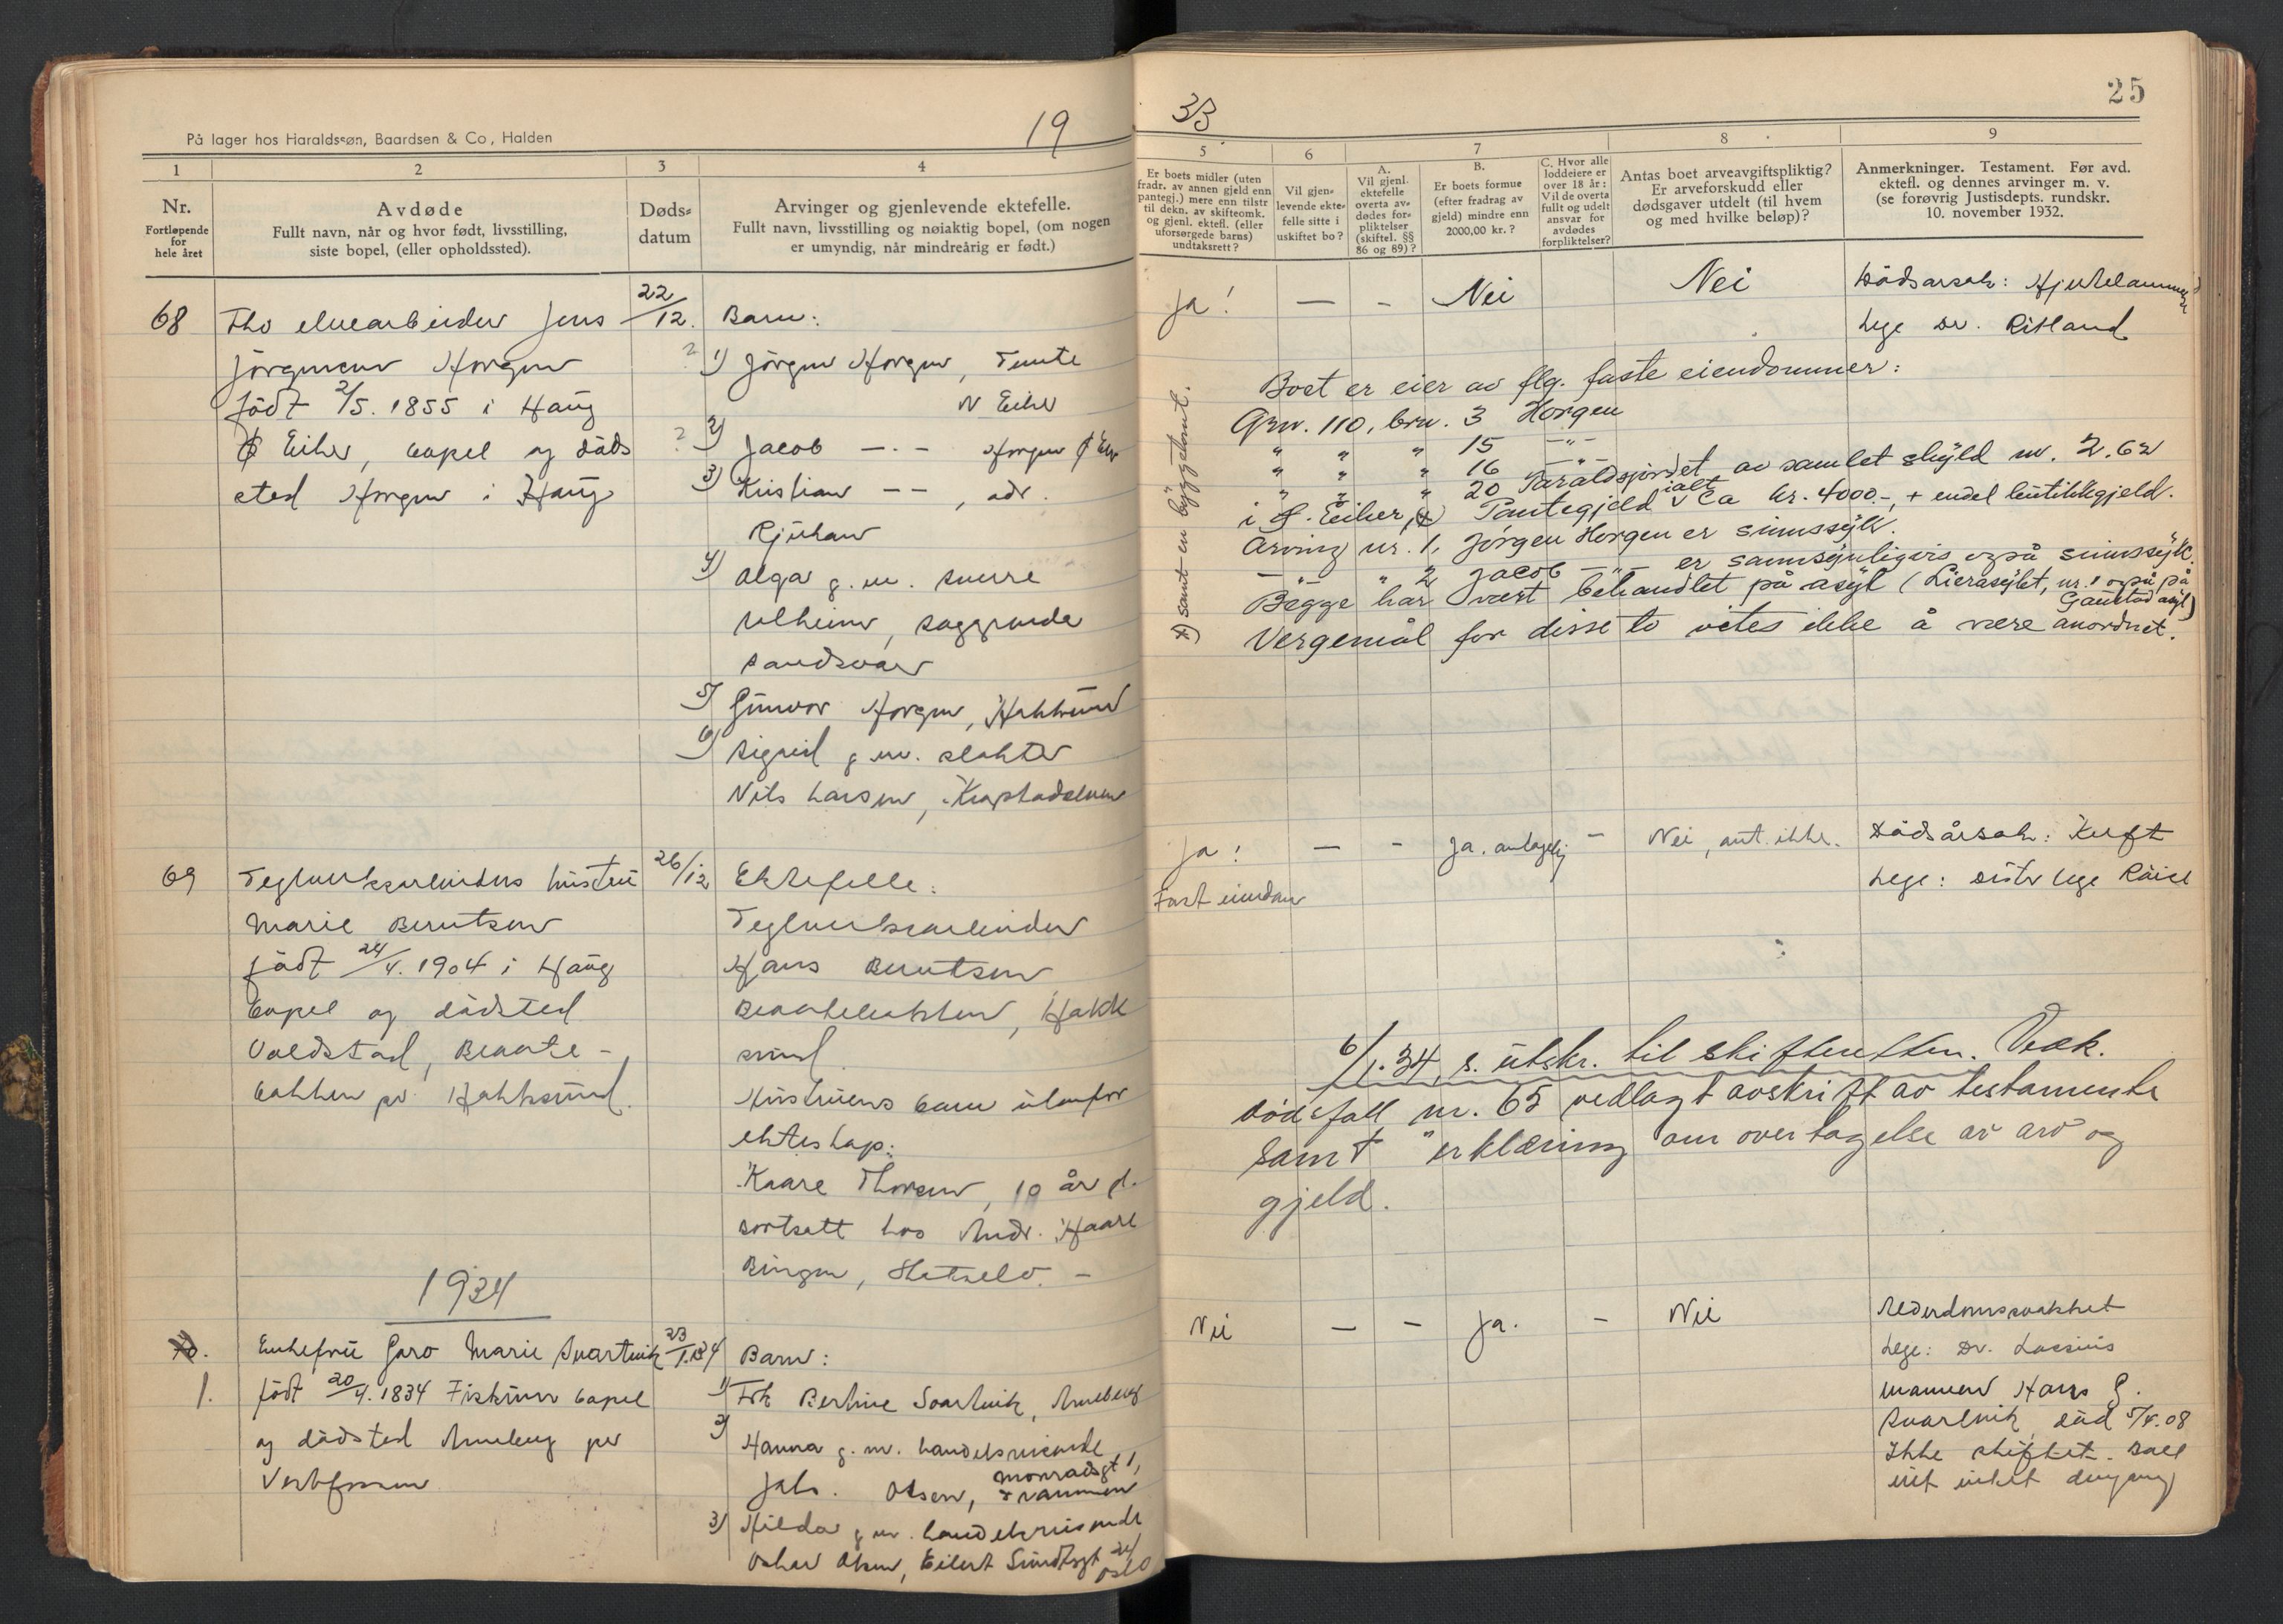 På lager hos Haraldssøn, Baardsen & Co, Halden
19
1
2
3
4
Nr.
Fortløpende
for
hele året
Avdøde
Fullt navn, når og hvor født, livsstilling,
siste bopel, (eller opholdssted).
Døds-
datum
Arvinger og gjenlevende ektefelle.
Fullt navn, livsstilling og nøiaktig bopel, (om nogen
er umyndig, når mindreårig er født.)
68
Jens
22/12.
Jørgensen Horgen
født 2/5. 1855 i Haug
Eiker, bopel og døds
sted Horgen i Haug
Barn:
1) Jørgen Horgen, Tomte
N Eiker
2) Jacob -"- Horgen
3) Kristian - -, adr.
Rjukan
4) Olga g. m. Sverre
Ulheim,
Sandsvær
5) Gunvor Horgen, Hokksund
6) Sigrid g. m. slakter
Nils Larsen,
69
Teglverksarbeiders hustru
26/12
Marie Berntsen
født 24/4. 1904 i Haug
bopel og dødsted
Voldstad,
per Hokksund.
Ektefelle:
Teglverksarbeider
Hans Berntsen
, Hokk
sund
Hustruens barn utenfor
ekteskap:
Kaare Thorsen, 10 år
bortsatt hos Andr. Kaare
Bingen,
1934
70.
1.
Enkefru Goro Marie Svartvik
23/1.34
født 20/4. 1834 Fiskum bopel
og dødsted Arneberg per
Vestfossen
Barn:
1) Frk Bertine Svartvik, Arneberg
2)
Hanna g. m. handelsreisende
Jahs. Olsen, Monradsgt 1,
Drammen
3) Hilda g. m. handelsreisende
Oskar Olsen, Eilert Sundtsgt
Oslo
33
25
5
6
7
8
9
Er boets midler (uten
fradr. av annen gjeld enn
pantegj.) mere enn tilstr
til dekn. av skifteomk.
og gjenl. ektefl. (eller
uforsørgede barns)
undtaksrett?
Vil gjen-
levende ekte-
felle sitte i
uskiftet bo?
A.
Vil gjenl.
ektefelle
overta av-
dødes for-
pliktelser
(skiftel. §§
86 og 89)?
B.
Er boets formue
(efter fradrag av
gjeld) mindre enn
2000,00 kr.?
C. Hvor alle
loddeiere er
over 18 år:
Vil de overta
fullt og udelt
ansvar for
avdødes
forpliktelser?
Antas boet arveavgiftspliktig?
Er arveforskudd eller
dødsgaver utdelt (til hvem
og med hvilke beløp)?
Anmerkninger. Testament. Før avd.
ektefl. og dennes arvinger m. v.
(se forøvrig Justisdepts. rundskr.
10. november 1932.
Ja! — - Nei Nei
Dødsarsak: Hjertelammelse
Lege Dr. Ritland
Boet er eier av flg. faste eiendommer:
Gnr. 110, bnr. 3 Horgen
" " " 15 -"-
" " " 16 -"-
" " " 20 Taraldsjordet, av samlet skyld m. 2.62
i Ø. Eiker, x) Pantegjeld ialt ca kr. 4000.-, + endel butikkgjeld.
Arving nr. 1, Jørgen Horgen er sinnssyk.
-"- " 2 Jacob -"- er sannsynligvis også sinnssyk.
Begge har vært behandlet på asyl (Lierasylet, nr. 1 også på
Gaustad asyl)
Vergemål for disse to vites ikke å være anordnet.
x) samt en byggetomt.
Ja! — - Ja. antagelig - Nei, ant. ikke.
Dødsårsak: Kreft
Fast eiendom
Lege: Distr lege Råill
6/1.34, s. utskr. til skifteretten. Vedk.
dødsfall nr. 65 vedlagt avskrift av testamente
samt erklæring om overtagelse av arv og
gjeld.
Nei — - Ja. - Nei
Alderdomssvakhet
Lege: Dr. Lassius
Mannen Hans G.
Svartvik død 5/4.08
Ikke skiftet.